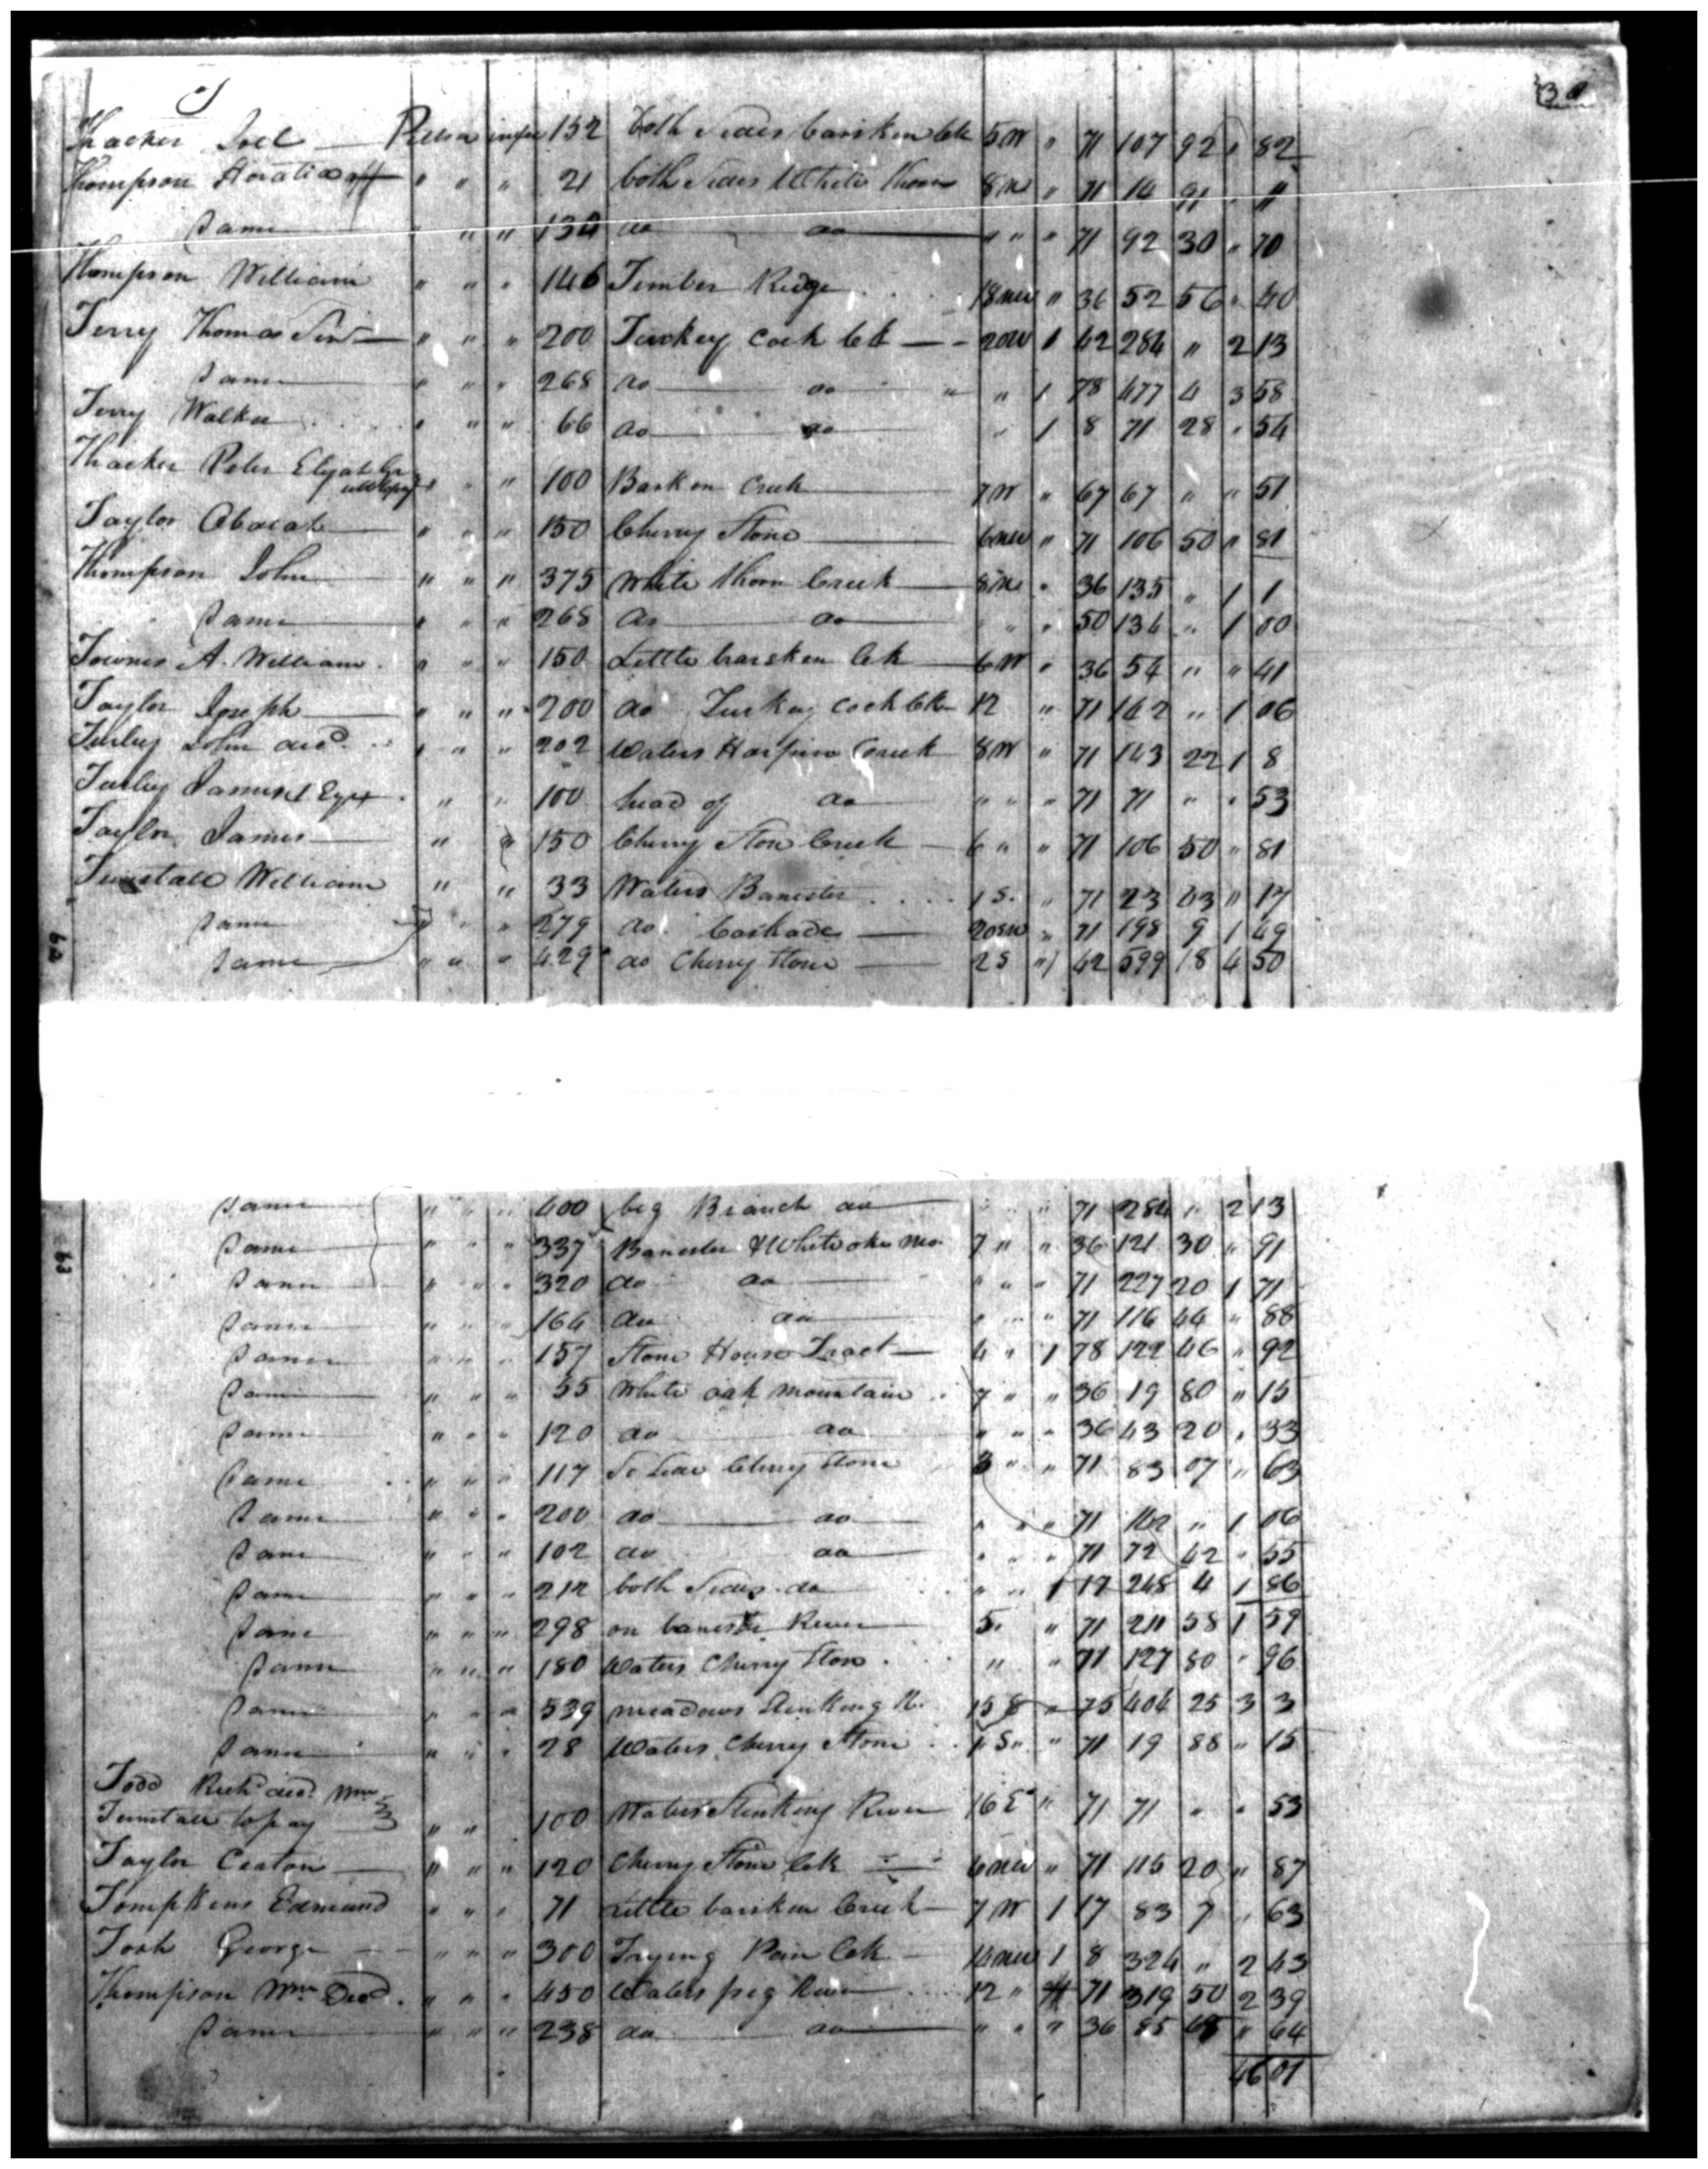 T 30
Thacker Joel Pittsa in fee 152 both sides barsken Cck 5 W " 71 107 92 " 82
Thompson Horatio " " " 21 both sides White thorn 8 N " 71 14 91 " 11
Same " " " 130 do do " " " 71 92 30 " 70
Thompson William " " " 146 Timber Ridge 18 NW " 36 52 56 " 40
Terry Thomas Senr " " " 200 Turkey cock Cck 20 W 1 42 284 " 2 13
Same " " " 268 do do " " 1 78 477 4 3 58
Terry Walker " " " 66 do do " 1 8 71 28 " 54
Thacker Peter Elijah
" " " 100 Barken Creek 7 W " 67 67 " " 51
Taylor " " " 150 Cherry Stone 6 NW " 71 106 50 " 81
Thompson John " " " 375 White thorn Creek 8 N " 36 135 " 1 1
Same " " " 268 do do " " " 50 134 " 1 00
Townes A. William " " " 150 Little barsken Cck 6 W " 36 54 " " 41
Taylor Joseph " " " 200 do Turkey cock Cck 12 " 71 142 " 1 06
John decd " " " 202 Waters Harpin Creek 8 W " 71 143 22 1 8
James " " 100 head of do " " " 71 71 " " 53
Taylor James " " 150 Cherry Stone Creek 6 " " 71 106 50 " 81
Tunstall William " " 33 Waters Banester 1 S. " 71 23 43 " 17
Same " " " 279 do Caskade 20 SW " 71 198 9 1 49
Same " " " 429 do Cherry Stone 2 S " 1 42 599 18 4 50
62
63
Same " " " 400 big Branch do " " " 71 284 " 2 13
Same " " " 337 Banester & White oke Mo. 7 " " 36 121 30 " 91
Same " " " 320 do do " " " 71 227 20 1 71
Same " " " 164 do do " " " 71 116 44 " 88
Same " " " 157 Stone House Tract 4 " 1 78 122 46 " 92
Same " " " 55 White oak mountain 7 " " 36 19 80 " 15
Same " " " 120 do do " " " 36 43 20 " 33
Same " " " 117 So Side Cherry Stone 3 " " 71 83 07 " 63
Same " " " 200 do do " " " 71 142 " 1 06
Same " " " 102 do do " " " 71 72 42 " 55
Same " " " 212 both sides do " " 1 17 248 4 1 86
Same " " " 298 on banester River 5 " " 71 211 58 1 59
Same " " " 180 Waters Cherry Stone " " 71 127 80 " 96
Same " " " 539 meadows Stinking R. 15 E " 75 404 25 3 3
Same " " " 28 Waters Cherry Stone 1 S " " 71 19 88 " 15
Todd Richd decd Wm
Tunstall to pay " " 100 Waters Stinking River 16 E " 71 71 " " 53
Taylor Ceaton " " " 120 Cherry Stone Cck 6 NW " 71 115 20 " 87
Tompkins Edmund " " " 71 Little barsken Creek 7 W 1 17 83 7 " 63
Tosh George " " " 300 Frying Pan Cck 14 NW 1 8 324 " 2 43
Thompson Wm Decd. " " " 450 Waters pig River 12 " 71 319 50 2 39
Same " " " 238 do do " " " 36 85 68 " 64
46 01